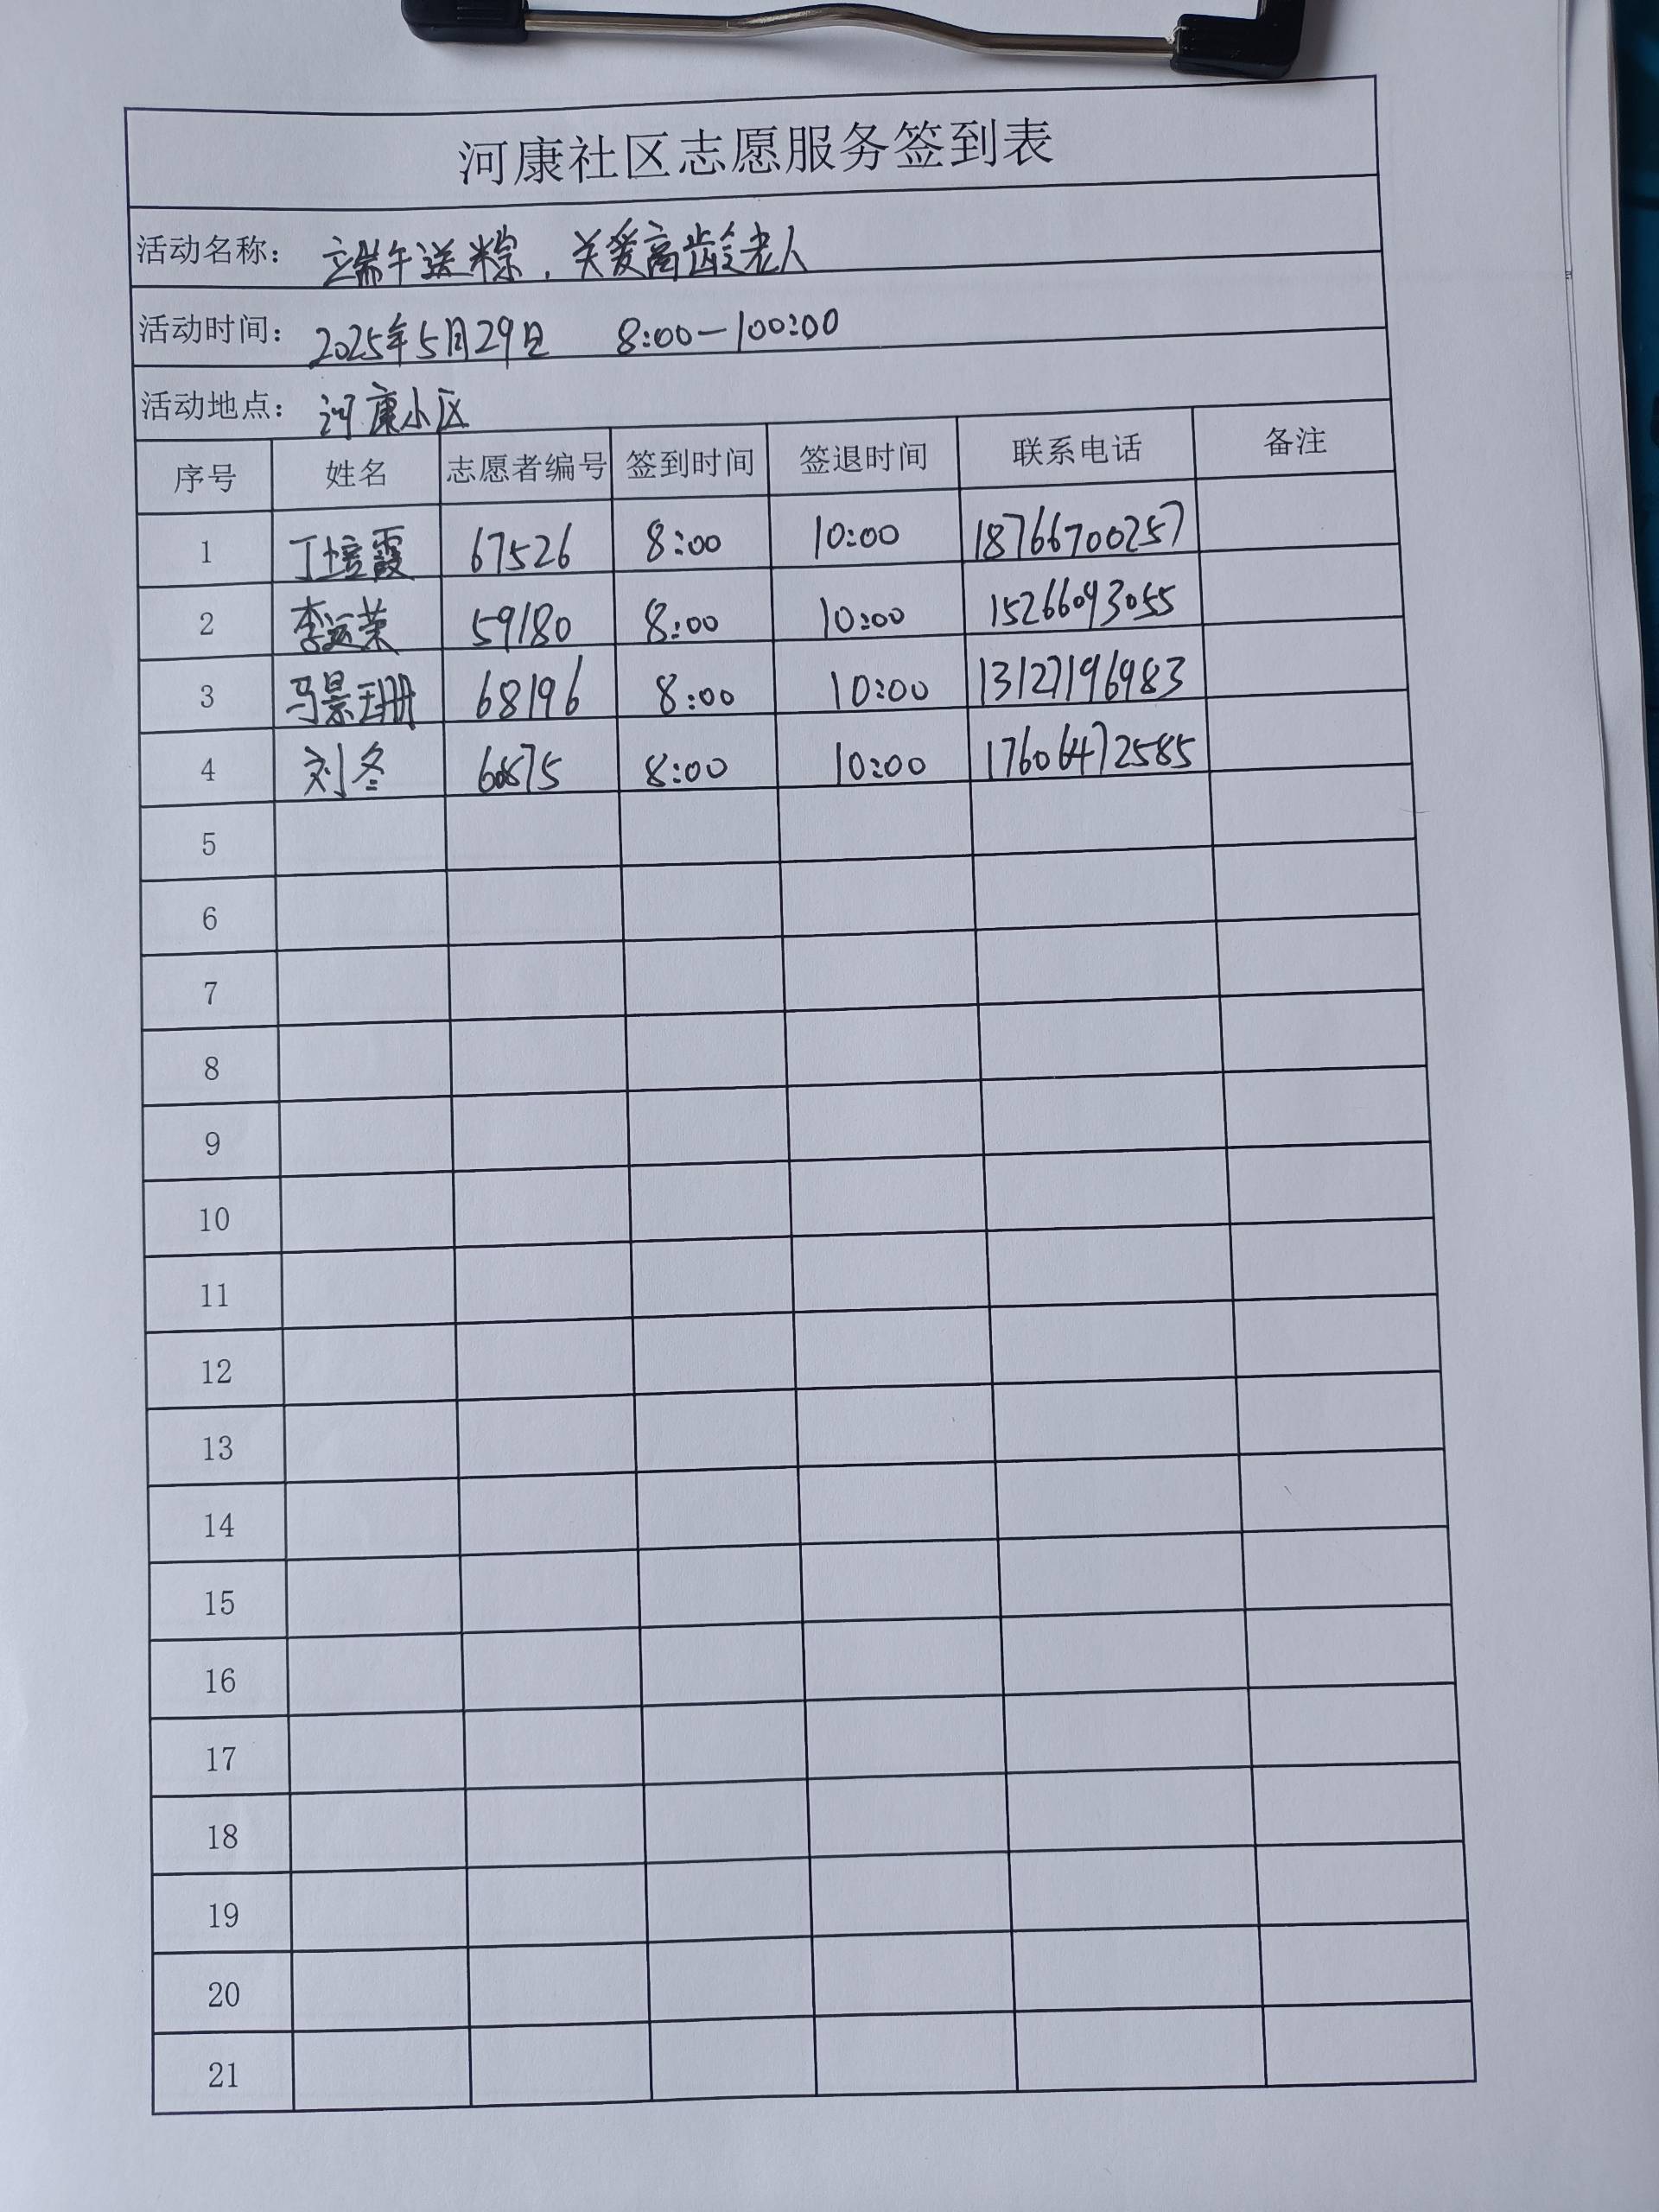 河康社区志愿服务签到表
活动名称： 端午送粽，关爱高龄老人
活动时间： 2025年5月29日 8:00—100:00
活动地点： 河康小区
序号 姓名 志愿者编号 签到时间 签退时间 联系电话 备注
1 丁培霞 67526 8:00 10:00 18766700257
2 李运荣 59180 8:00 10:00 15266093055
3 马景珊 68196 8:00 10:00 13127196983
4 刘冬 60875 8:00 10:00 17606472585
5
6
7
8
9
10
11
12
13
14
15
16
17
18
19
20
21